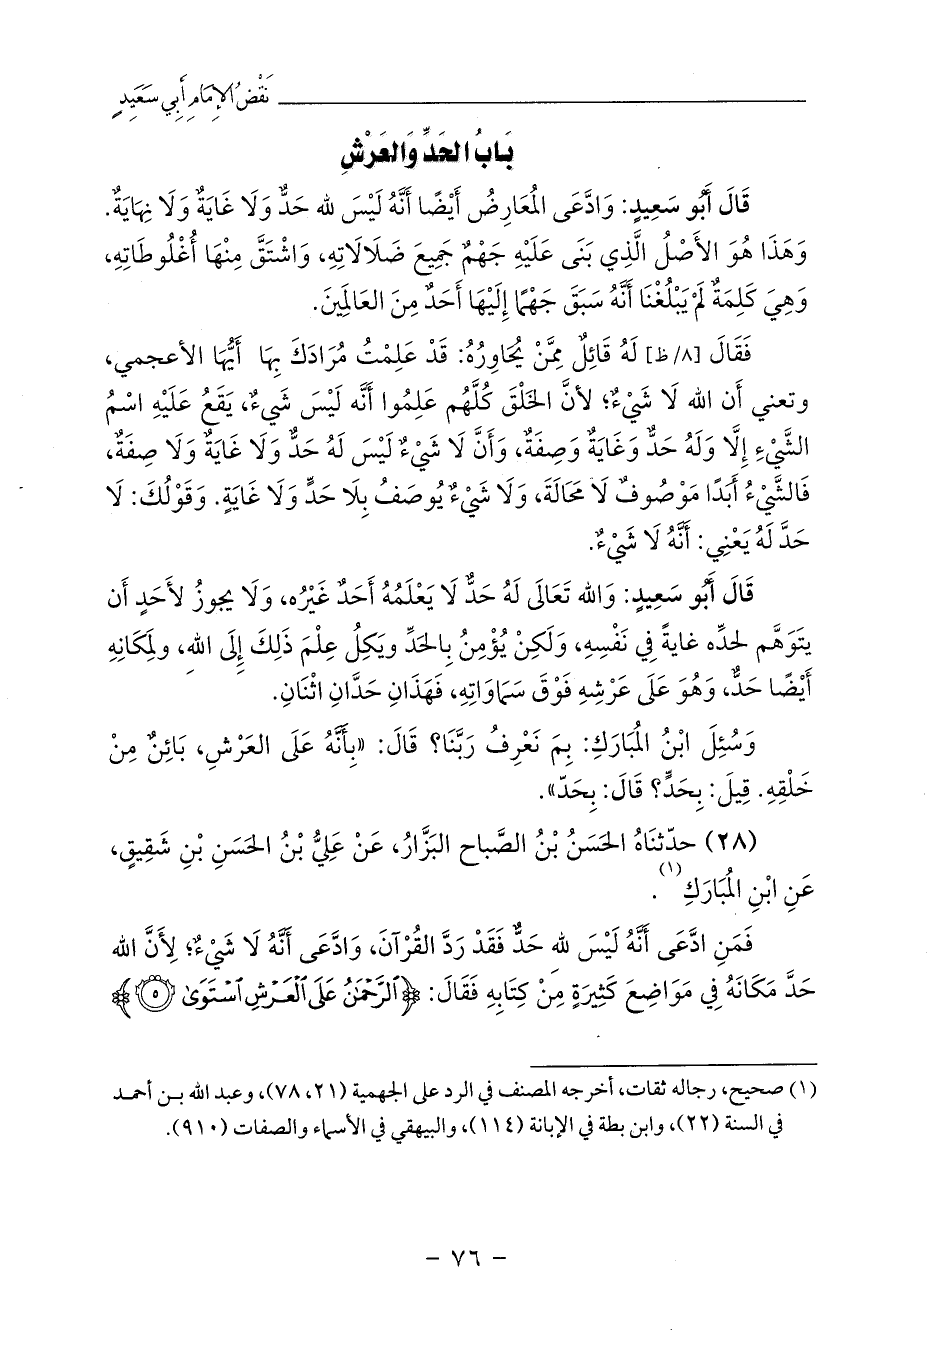 نَقْضُ الإِمَامِ أَبِي سَعِيدٍ
بَابُ الحَدِّ وَالعَرْشِ
قَالَ أَبُو سَعِيدٍ: وَادَّعَى المُعَارِضُ أَيْضًا أَنَّهُ لَيْسَ لله حَدٌّ وَلَا غَايَةٌ وَلَا نِهَايَةٌ.
وَهَذَا هُوَ الأَصْلُ الَّذِي بَنَى عَلَيْهِ جَهْمٌ جَمِيعَ ضَلَالَاتِهِ، وَاشْتَقَّ مِنْهَا أُغْلُوطَاتِهِ،
وَهِيَ كَلِمَةٌ لَمْ يَبْلُغْنَا أَنَّهُ سَبَقَ جَهْمًا إِلَيْهَا أَحَدٌ مِنَ العَالَمِينَ.
فَقَالَ [٨/ظ] لَهُ قَائِلٌ مِمَّنْ يُحَاوِرُهُ: قَدْ عَلِمْتُ مُرَادَكَ بِهَا أَيُّهَا الأعجمي،
وتعني أَن الله لَا شَيْءٌ؛ لأنَّ الخَلْقَ كُلَّهُم عَلِمُوا أنَّه لَيْسَ شَيْءٌ، يَقَعُ عَلَيْهِ اسْمُ
الشَّيْءِ إِلَّا وَلَهُ حَدٌّ وَغَايَةٌ وَصِفَةٌ، وَأَنَّ لَا شَيْءٌ لَيْسَ لَهُ حَدٌّ وَلَا غَايَةٌ وَلَا صِفَةٌ،
فَالشَّيْءُ أَبَدًا مَوْصُوفٌ لَا مَحَالَةَ، وَلَا شَيْءٌ يُوصَفُ بِلَا حَدٍّ وَلَا غَايَةٍ. وَقَوْلُكَ: لَا
حَدَّ لَهُ يَعْنِي: أَنَّهُ لَا شَيْءٌ.
قَالَ أَبُو سَعِيدٍ: وَالله تَعَالَى لَهُ حَدٌّ لَا يَعْلَمُهُ أَحَدٌ غَيْرُه، وَلَا يجوزُ لأَحَدٍ أَن
يتَوَهَّم لحدِّه غايةً فِي نَفْسِهِ، وَلَكِنْ يُؤْمِنُ بِالحَدِّ ويَكِلُ عِلْمَ ذَلِكَ إِلَى الله، ولِمَكَانِهِ
أَيْضًا حَدٌّ، وَهُوَ عَلَى عَرْشِهِ فَوْقَ سَمَاوَاتِهِ، فَهَذَانِ حَدَّانِ اثْنَانِ.
وَسُئِلَ ابْنُ المُبَارَكِ: بِمَ نَعْرِفُ رَبَّنَا؟ قَالَ: «بِأَنَّهُ عَلَى العَرْشِ، بَائِنٌ مِنْ
خَلْقِهِ. قِيلَ: بِحَدٍّ؟ قَالَ: بِحَدّ».
(٢٨) حدّثنَاهُ الحَسَنُ بْنُ الصَّباحِ البَزَّارُ، عَنْ عَلِيُّ بْنُ الحَسَنِ بْنِ شَقِيقٍ،
عَنِ ابْنِ المُبَارَكِ(١).
فَمَنِ ادَّعَى أَنَّهُ لَيْسَ لله حَدٌّ فَقَدْ رَدَّ القُرْآنَ، وَادَّعَى أَنَّهُ لَا شَيْءٌ؛ لِأَنَّ الله
حَدَّ مَكَانَهُ فِي مَوَاضِعَ كَثِيرَةٍ مِنْ كِتَابِهِ فَقَالَ: ﴿ٱلرَّحْمَٰنُ عَلَى ٱلْعَرْشِ ٱسْتَوَىٰ ۝٥﴾
(١) صحيح، رجاله ثقات، أخرجه المصنف في الرد على الجهمية (٢١، ٧٨)، وعبد الله بن أحمد
في السنة (٢٢)، وابن بطة في الإبانة (١١٤)، والبيهقي في الأسماء والصفات (٩١٠).
- ٧٦ -